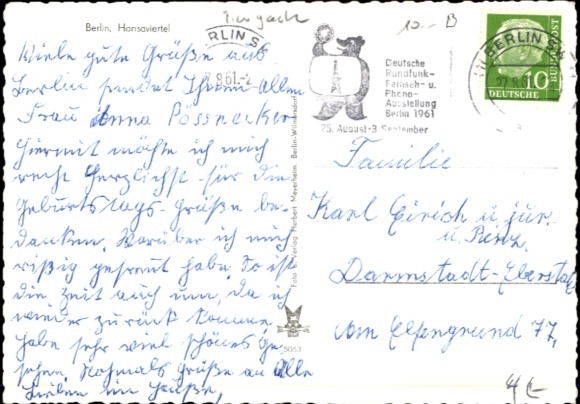 Berlin, Hansaviertel
Viele gute Grüße aus
Berlin sendet Ihnen Allen
Frau Anna Pössnecker
Hiermit möchte ich mich
recht herzlichst für die
Geburtstags-Grüße be-
danken. Worüber ich mich
riesig gefreut habe. So ist
die Zeit auch um, da ich
wieder zurück komme.
habe sehr viel schönes ge-
sehen. Nochmals Grüße an Alle
Lieben im Hause,
Foto u. Verlag Herbert Meyerheim, Berlin-Wilmersdorf
5063
10.- B
RLIN SW
.8.61.-2
Deutsche
Rundfunk-
Fernseh- u.
Phono-
Ausstellung
Berlin 1961
25. August-3. September
BERLIN SW
27.8.
10
DEUTSCHE
BUNDESPOST
Familie
Karl Eirich u. jür.
u. Prinz
Darmstadt-Eberstadt
Am Elfengrund 77,
4.-